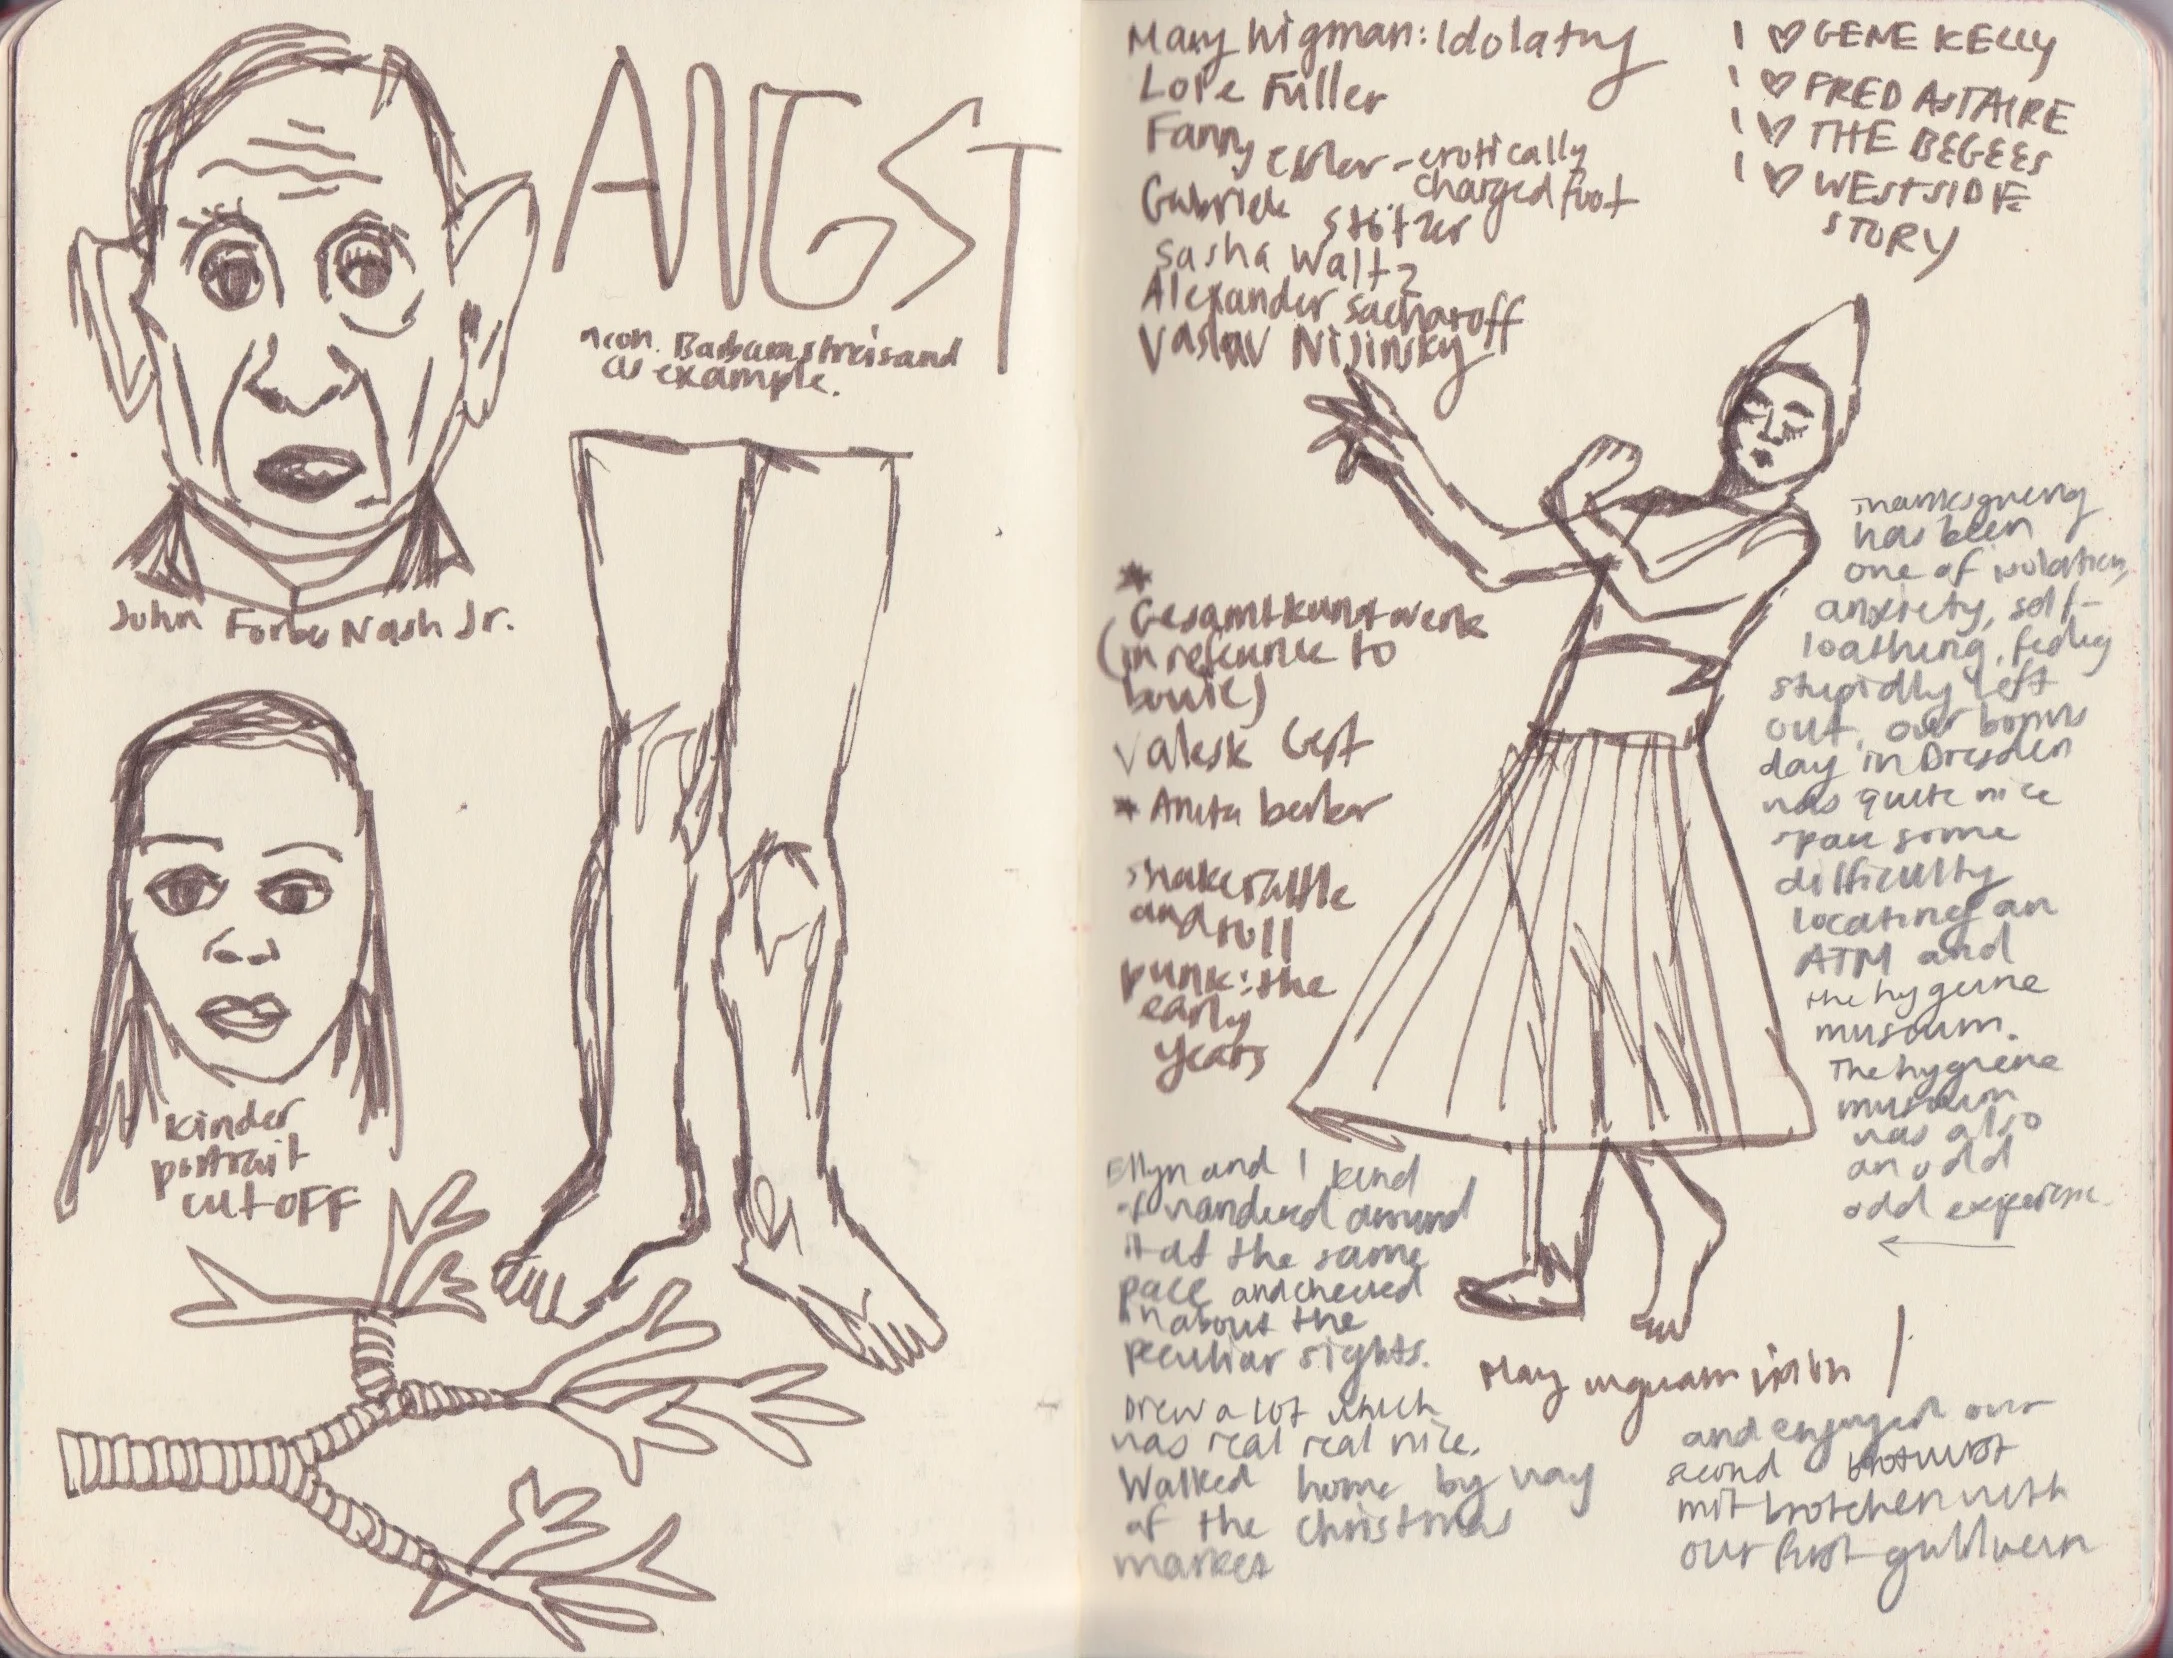 ANGST
neon. Barbara Streisand
as example.
John Forbes Nash Jr.
kinder
portrait
cut-OFF
Mary Wigman: Idolatry
Loie Fuller
Fanny Elsler - erotically
charged foot
Gabriele Stötzer
Sasha Waltz
Alexander Sacharoff
Vaslav Nijinsky
I ♡ GENE KELLY
I ♡ FRED ASTAIRE
I ♡ THE BEGEES
I ♡ WESTSIDE
STORY
*
Gesamtkunstwerk
(in reference to
bowie)
Valesk Gert
* Anita berber
shake rattle
and roll
punk: the
early
years
Thanksgiving
has been
one of isolation,
anxiety, self-
loathing, feeling
stupidly left
out. our bonus
day in Dresden
was quite nice
spare some
difficulty
locating an
ATM and
the hygeine
museum.
The hygiene
museum
was also
an odd
odd experience.
←
Ellyn and I kind
of wandered around
it at the same
pace and checked
in about the
peculiar sights.
Drew a lot which
was real real nice.
Walked home by way
of the christmas
market
Mary wigman
and enjoyed our
second bratwurst
mit brotchen with
our first gluhwein